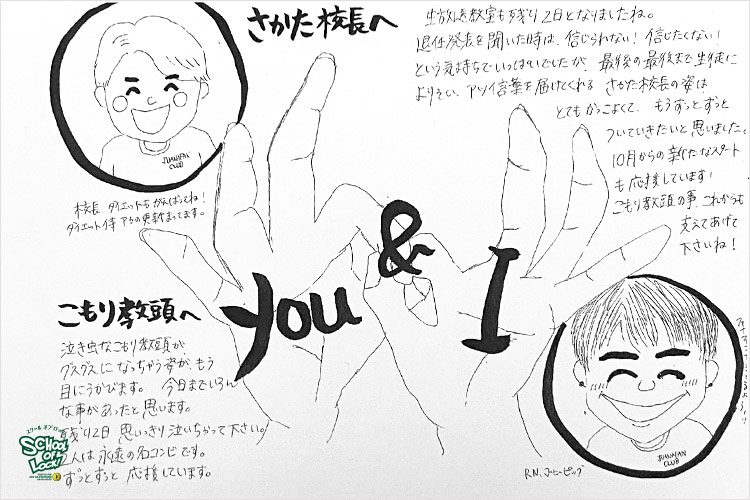 さかた校長へ
生放送教室も残り2日となりましたね。
退任発表を聞いた時は、信じられない!信じたくない!
という気持ちでいっぱいでしたが、最後の最後まで生徒に
よりそい、アツイ言葉を届けてくれる さかた校長の姿は
とてもかっこよくて、もうずっとずっと
ついていきたいと思いました。
10月からの新たなスタート
も応援しています!
こもり教頭の事、これからも
支えてあげて
下さいね!
JUANAFAN
CLUB
校長 ダイエットもがんばってね!
ダイエット侍 アプリの更新まってます。
you & I
こもり教頭へ
泣き虫なこもり教頭が、
グスグスになっちゃう姿が、もう
目にうかびます。 今日までいろん
な事があったと思います。
残り2日 思いっきり泣いちゃって下さい。
2人は永遠の名コンビです。
ずっとずっと 応援しています。
JUANAFAN
CLUB
スクール オブ ロック
SCHOOL
OF
LOCK!